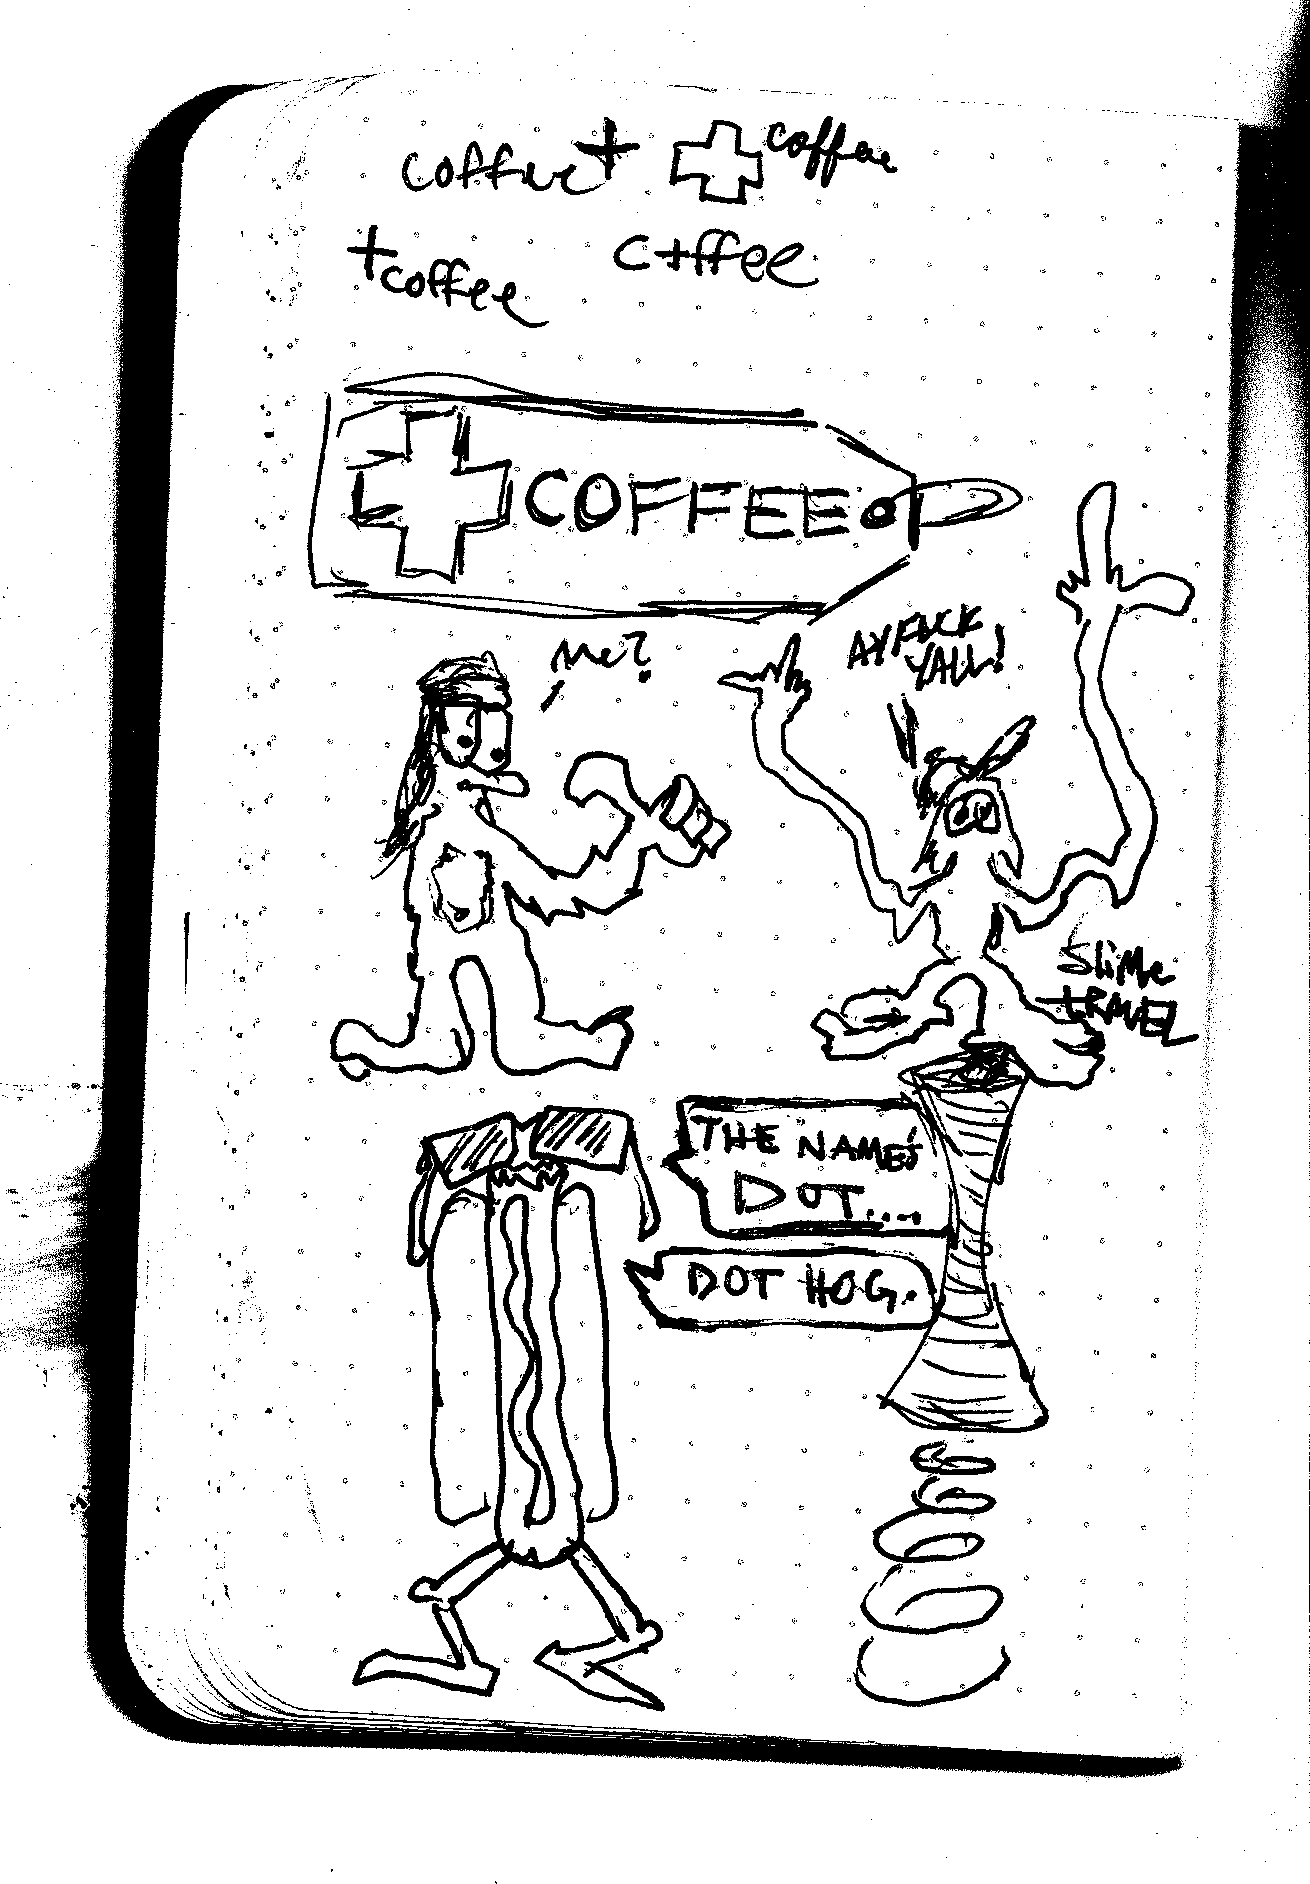 coffee+ coffee
+coffee c+ffee
COFFEE
ME?
AY FUCK
YALL!
SLIME
TRAVEL
THE NAME'S
DOT....
DOT HOG.